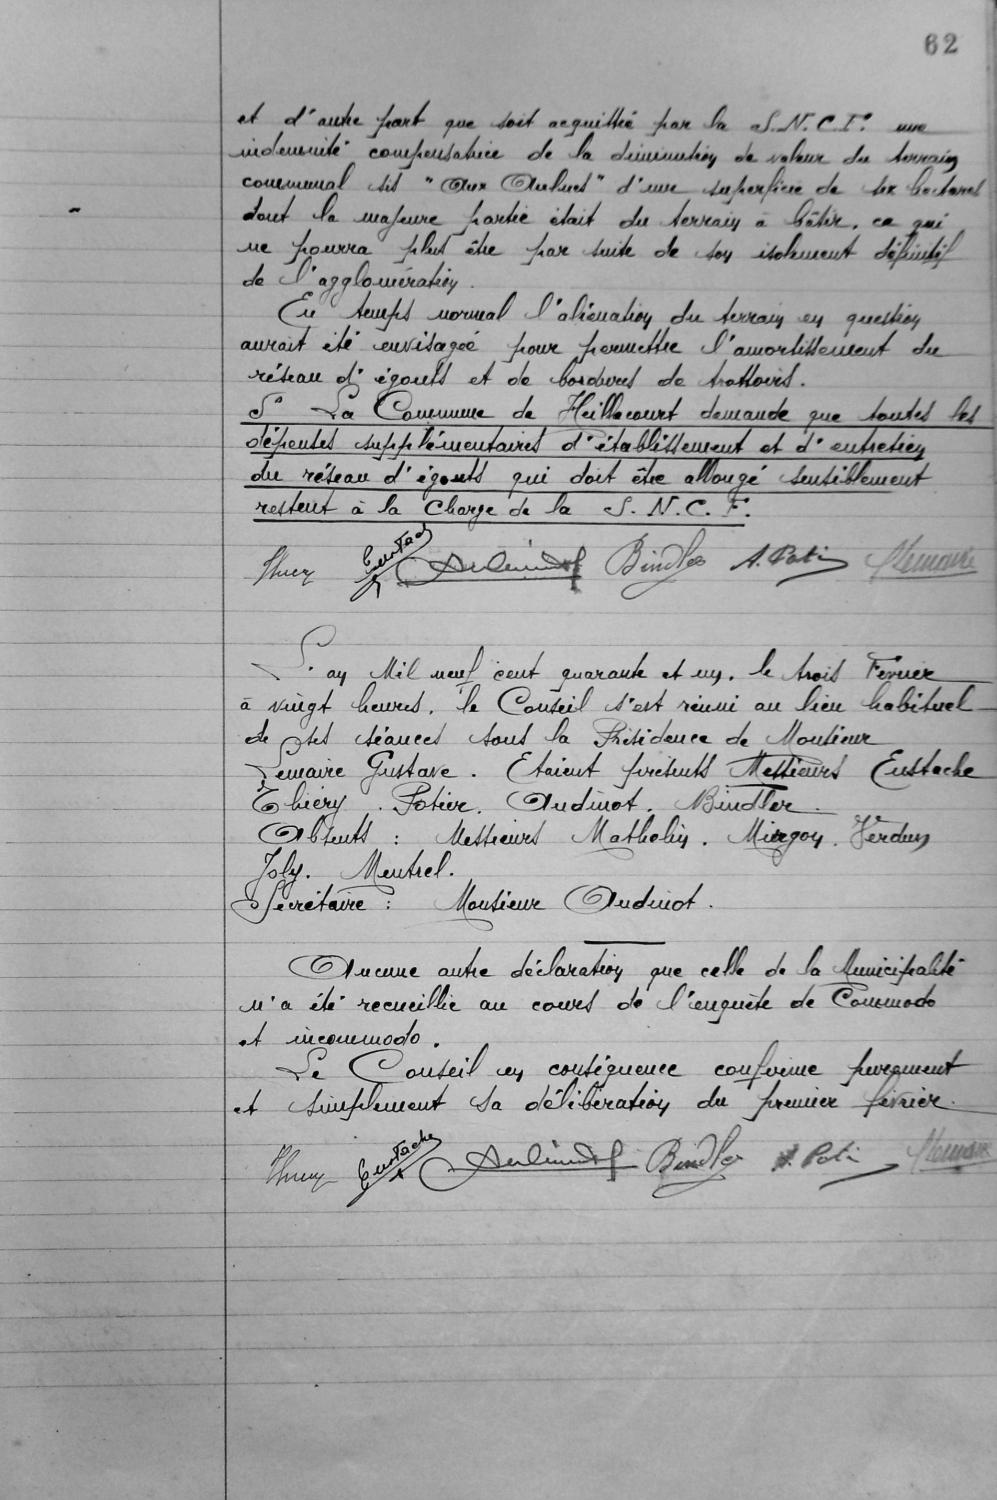 62
et d'autre part que soit acquittée par la S.N.C.F. une
indemnité compensatrice de la diminution de valeur du terrain
communal sis "Aux Aulnes" d'une superficie de six hectares
dont la majeure partie était du terrain à bâtir, ce qui
ne pourra plus être par suite de son isolement définitif
de l'agglomération.
En temps normal l'aliénation du terrain en question
aurait été envisagée pour permettre l'amortissement du
réseau d'égouts et de bordures de trottoirs.
5° La Commune de Heillecourt demande que toutes les
dépenses supplémentaires d'établissement et d'entretien
du réseau d'égouts qui doit être allongé sensiblement
restent à la charge de la S.N.C.F.
Eustache Audinot Bindler A. Potier Lemaire
L'an Mil neuf cent quarante et un, le trois Février
à vingt heures, le Conseil s'est réuni au lieu habituel
de ses séances sous la Présidence de Monsieur
Lemaire Gustave. Etaient présents Messieurs Eustache
Thiéry, Potier, Audinot, Bindler.
Absents : Messieurs Mathelin, Mirgon, Verdun
Joly, Mentrel.
Secrétaire : Monsieur Audinot.
Aucune autre déclaration que celle de la Municipalité
n'a été recueillie au cours de l'enquête de Commodo
et incommodo.
Le Conseil en conséquence confirme purement
et simplement sa délibération du premier février.
Eustache Audinot Bindler A. Potier Lemaire